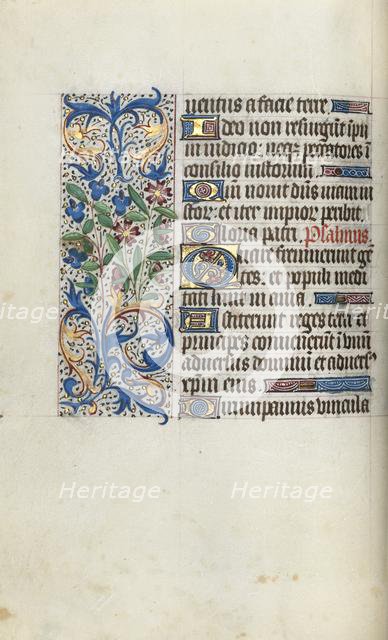 uentus a facie terre
Ideo non resurgūt ipii
in iudicio: necꝫ peccatores ī
consilio iustorum
Qm nouit dūs uiam iu
stor: et iter impior peribit
Gloria patri Psalmus
Quare fremuerunt gē
tes: et populi medi
tati sunt inania
Astiterunt reges terre et
principes conuenerūt ī vnū
aduersus dominū et aduers
xp̄m eius
Dirumpamus vincula
Heritage
Heritage
Heritage
Heritage
Heritage
Heritage